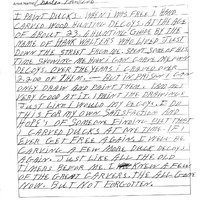 Artist Name:
I PAINT DUCKS. WHEN I WAS FREE, I HAND
CARVED WOOD HUNTING DECOYS. AT THE AGE
OF ABOUT 23. A HUNTING GUIDE BY THE
NAME OF MARK WHO LIVED JUST
DOWN THE STREET FROM ME. SPENT SOME OF HIS
TIME SHOWING ME HOW I CAN CARVE MY OWN
DECOYS. OVER THE YEARS I CARVED OVER
OF THEM. — BUT IN PRISON I CAN
ONLY DRAW AND PAINT THEM. I AM NOT
VERY GOOD AT IT. I PAINT THE DRAWINGS
JUST LIKE I WOULD MY DECOYS. I DO
THIS FOR MY OWN SATISFACTION AND
HOPE'S OF SOMEONE FINDING OUT THAT
I CARVED DUCKS AT ONE TIME. IF I
EVER GET FREE AGAIN, I WILL BE
CARVING A FEW MORE DUCK DECOYS
AGAIN. JUST LIKE ALL THE OLD
TIMERS BEFOR ME. I KNEW A FEW
OF THE GREAT CARVERS. THE ALL GONE
NOW. BUT NOT FORGOTTEN.